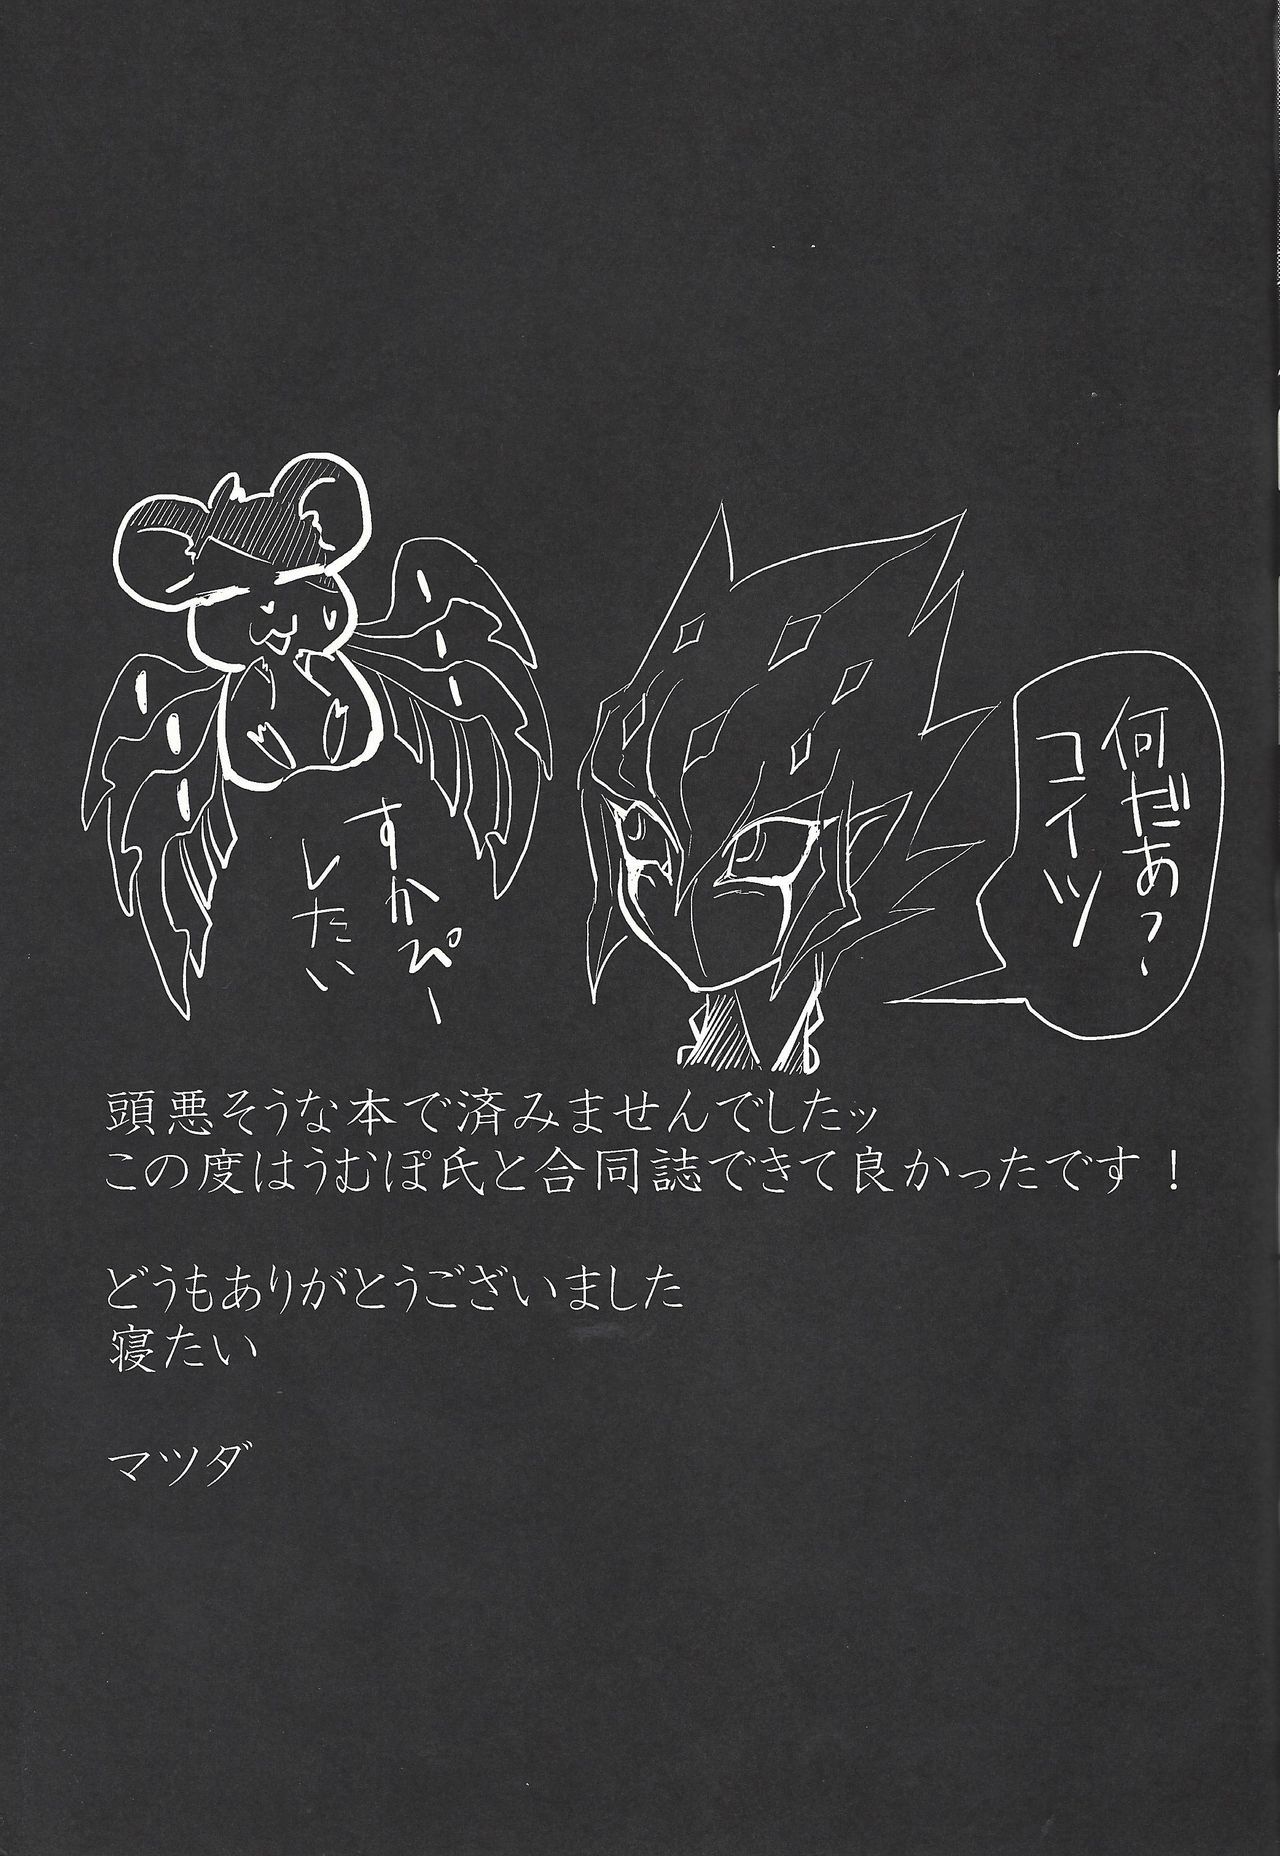 何だあっ、
コイツ
すかぴー
したい
頭悪そうな本で済みませんでしたッ
この度はうむぽ氏と合同誌できて良かったです！
どうもありがとうございました
寝たい
マツダ